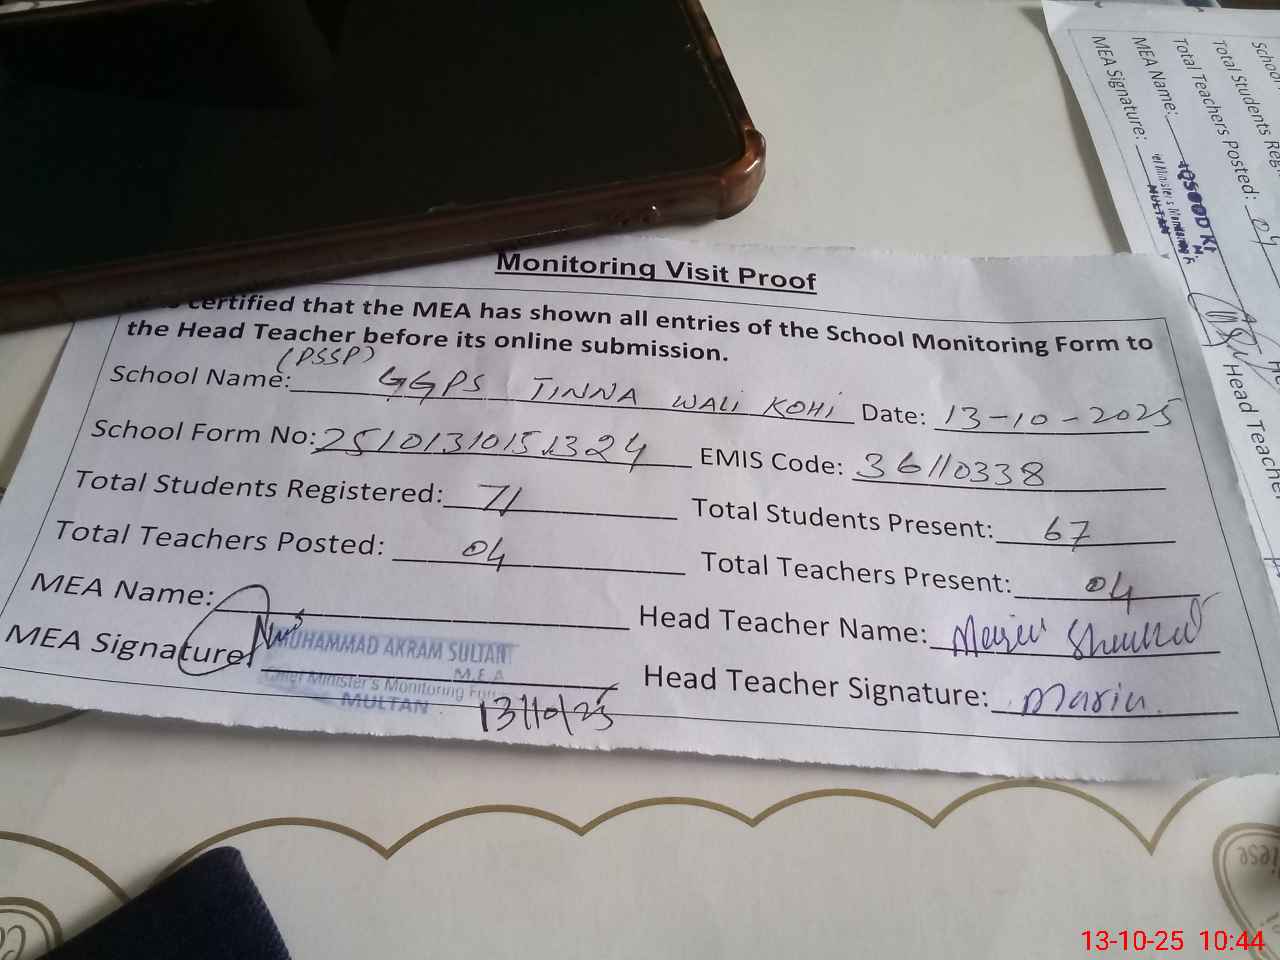 Monitoring Visit Proof
certified that the MEA has shown all entries of the School Monitoring Form to
the Head Teacher before its online submission.
(PSSP)
School Name: GGPS JINNA WALI KOHI Date: 13-10-2025
School Form No: 2510131015 EMIS Code: 36110338
Total Students Registered: 71 Total Students Present: 67
Total Teachers Posted: 04 Total Teachers Present: 04
MEA Name: Head Teacher Name:
MEA Signature Head Teacher Signature: Maria
MUHAMMAD AKRAM SULTAN
M.E.A
Chief Minister's Monitoring Force
MULTAN
13/10/25
School
Total Students Reg
Total Teachers Posted: 04
MEA Name:
MEA Signature:
MULTAN
Head Teacher
13-10-25 10:44